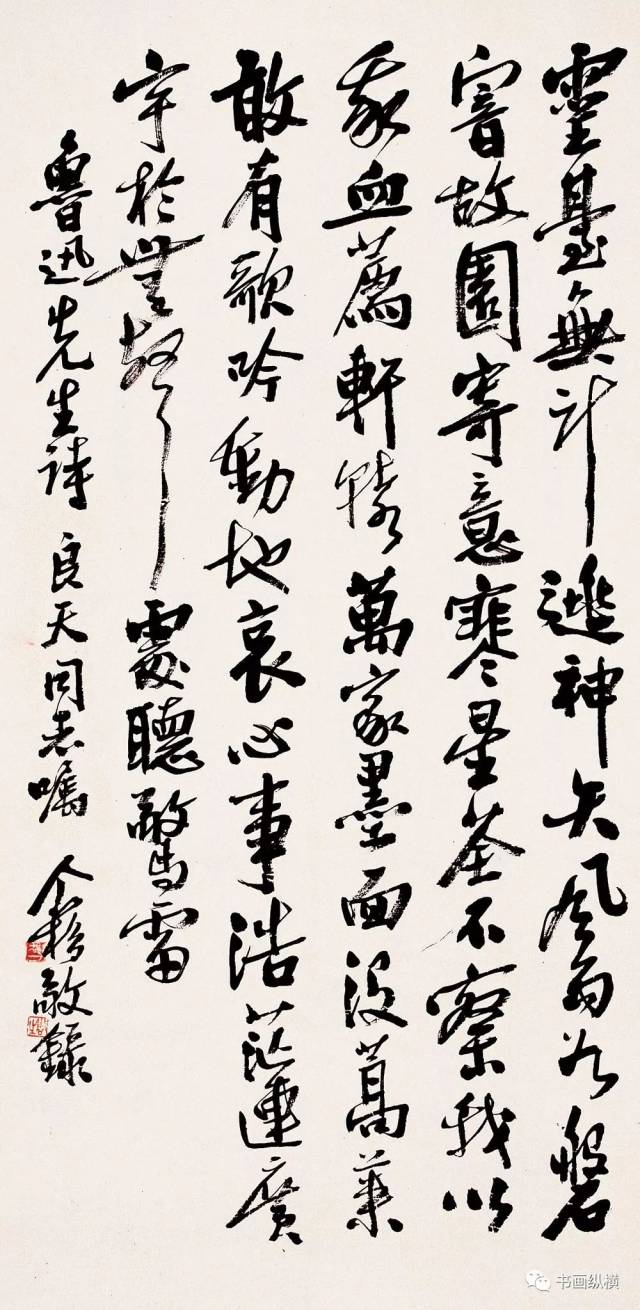 靈臺無計逃神矢風雨如磐
闇故園寄意寒星荃不察我以
我血薦軒轅萬家墨面没蒿萊
敢有歌吟動地哀心事浩茫連廣
宇於無聲處聽驚雷
魯迅先生诗 良天同志嘱 个簃敬錄
书画纵横